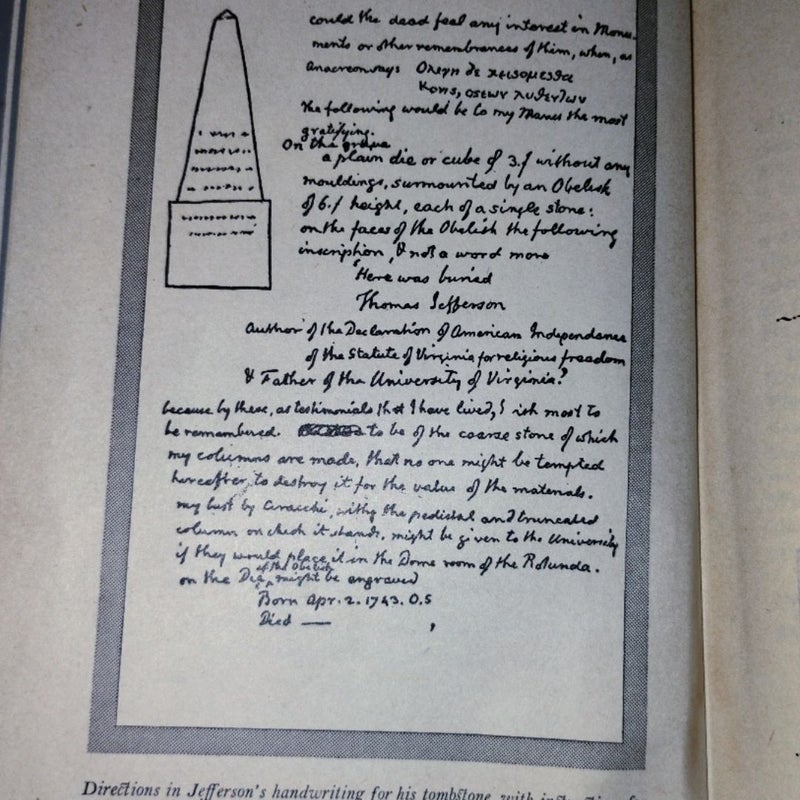 could the dead feel any interest in Monu-
ments or other remembrances of him, when, as
Anacreon says Ολιγη δε κεισομεσθα
Κονις, οστεων λυθεντων
the following would be to my Manes the most
gratifying.
On the grave
a plain die or cube of 3.f without any
mouldings, surmounted by an Obelisk
of 6.f height, each of a single stone:
on the faces of the Obelisk the following
inscription, & not a word more
'Here was buried
Thomas Jefferson
Author of the Declaration of American Independance
of the Statute of Virginia for religious freedom
& Father of the University of Virginia.'
because by these, as testimonials that I have lived, I ish most to
be remembered. to be of the coarse stone of which
my columns are made, that no one might be tempted
hereafter to destroy it for the value of the materials.
my bust by Ciracchi, with the pedistal and truncated
column on which it stands, might be given to the University
if they would place it in the Dome room of the Rotunda.
of the Obelisk
on the Die might be engraved
Born Apr. 2. 1743. O.S
Died ——
Directions in Jefferson's handwriting for his tombstone, with